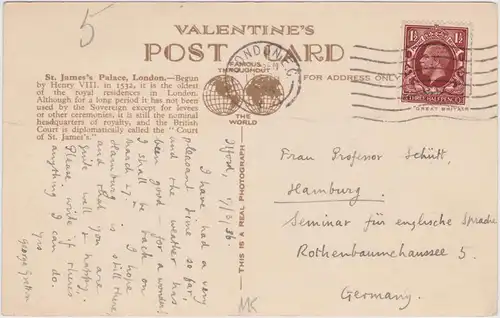 5
VALENTINE'S
POST CARD
FAMOUS
THROUGHOUT
THE
WORLD
FOR ADDRESS ONLY
LONDON E.C.
1½
1½
THREE HALFPENCE
GREAT BRITAIN
St. James's Palace, London.—Begun
by Henry VIII. in 1532, it is the oldest
of the royal residences in London.
Although for a long period it has not been
used by the Sovereign except for levees
or other ceremonies, it is still the nominal
headquarters of royalty, and the British
Court is diplomatically called the "Court
of St. James's."
THIS IS A REAL PHOTOGRAPH
Ilford,
I have had a very
pleasant time so far,
and the weather has
been good - for a wonder!
I shall be back on
March 27. I hope
Hamburg is still there,
and that you are
quite well & happy.
Please write if there's
anything I can do.
Yrs
George
Frau Professor Schütt,
Hamburg.
Seminar für englische Sprache
Rothenbaumchaussee 5.
Germany.
MK